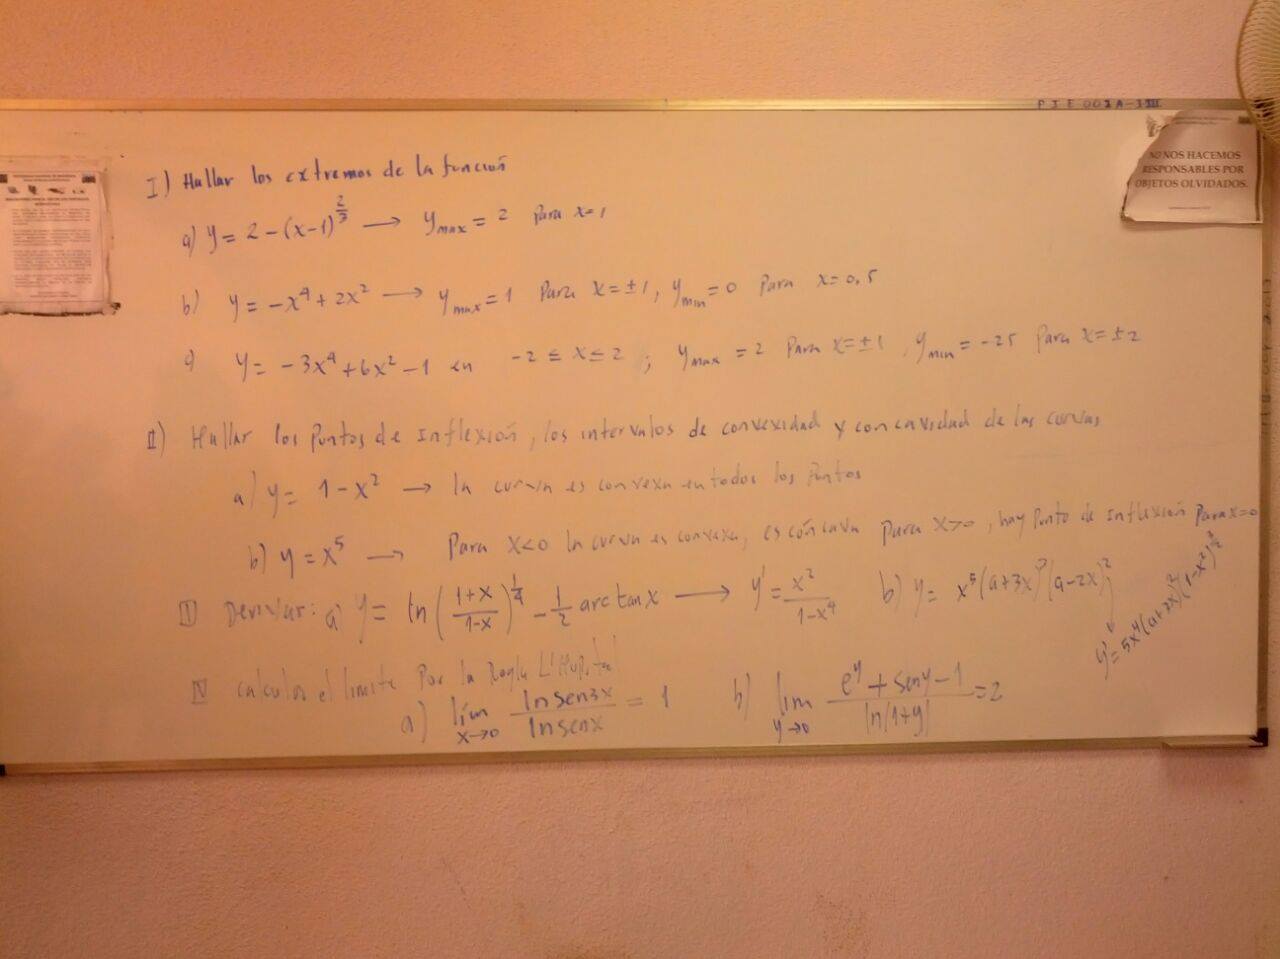 PIE 001A-III
NO NOS HACEMOS
RESPONSABLES POR
OBJETOS OLVIDADOS.
I) Hallar los extremos de la función
a) y = 2-(x-1)^{2/3} → y_max = 2 para x=1
b) y = -x^4+2x^2 → y_max = 1 para x=±1, y_min = 0 para x=0,5
c) y = -3x^4+6x^2-1 en -2 ≤ x ≤ 2 ; y_max = 2 para x=±1, y_min = -25 para x=±2
II) Hallar los puntos de inflexión, los intervalos de convexidad y concavidad de las curvas
a) y = 1-x^2 → la curva es convexa en todos los puntos
b) y = x^5 → para x<0 la curva es convexa, es cóncava para x>0, hay punto de inflexión para x=0
III Derivar: a) y = ln((1+x)/(1-x))^{1/4} - 1/2 arctan x → y' = x^2/(1-x^4) b) y = x^5(a+3x)^3(a-2x)^2
y' = 5x^4(a+2x)^2(1-x^2)^{3/2}
IV calcular el limite por la Regla L'Hopital
a) lím x→0 ln sen3x / ln senx = 1 b) lím y→0 (e^y + sen y - 1)/ln(1+y) = 2